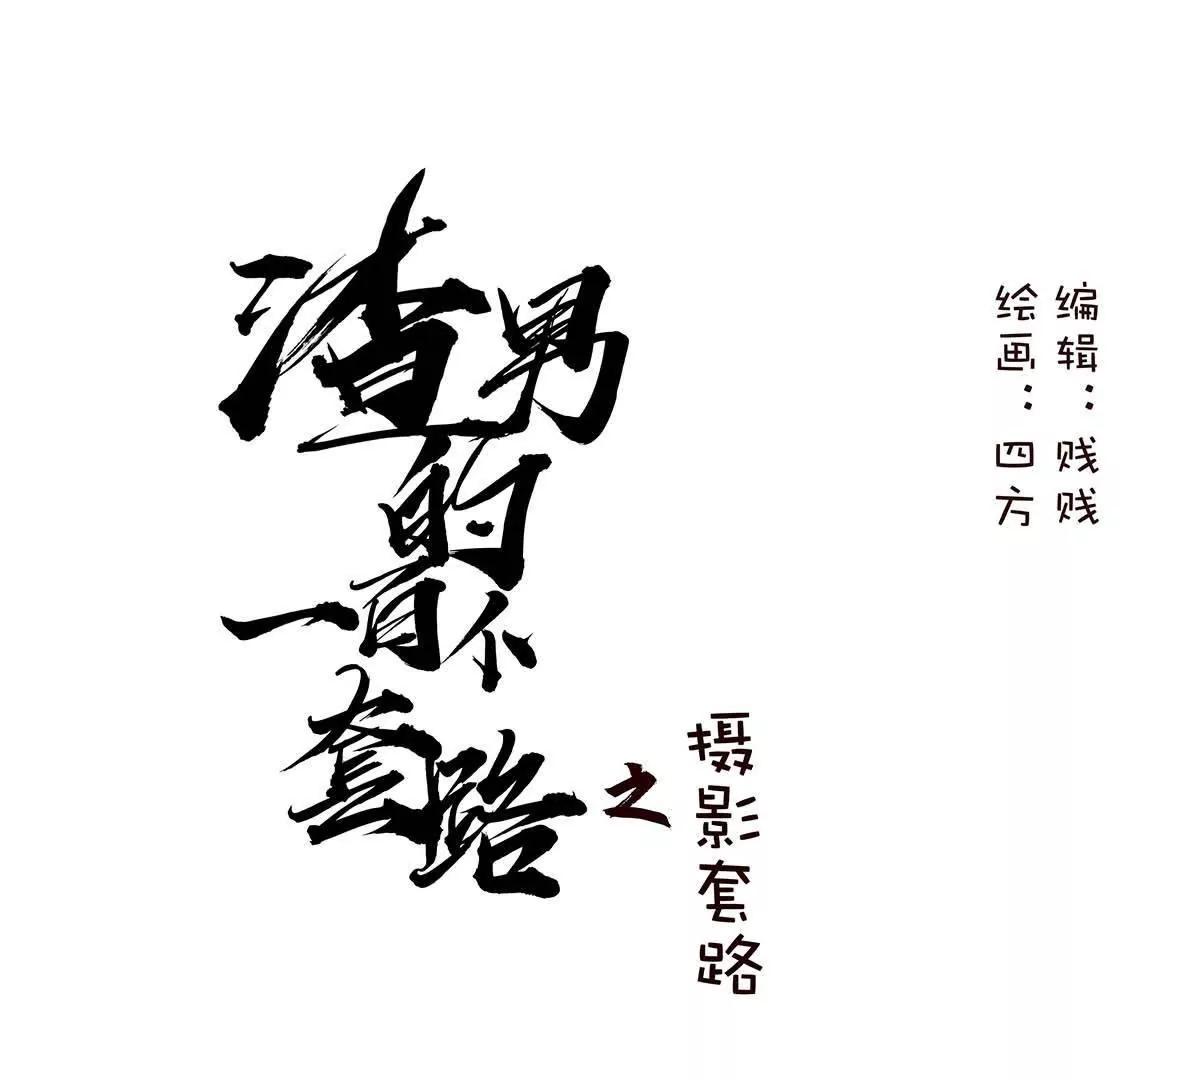 渣男
的
一百个
套路
之
摄影套路
编辑：贱贱
绘画：四方